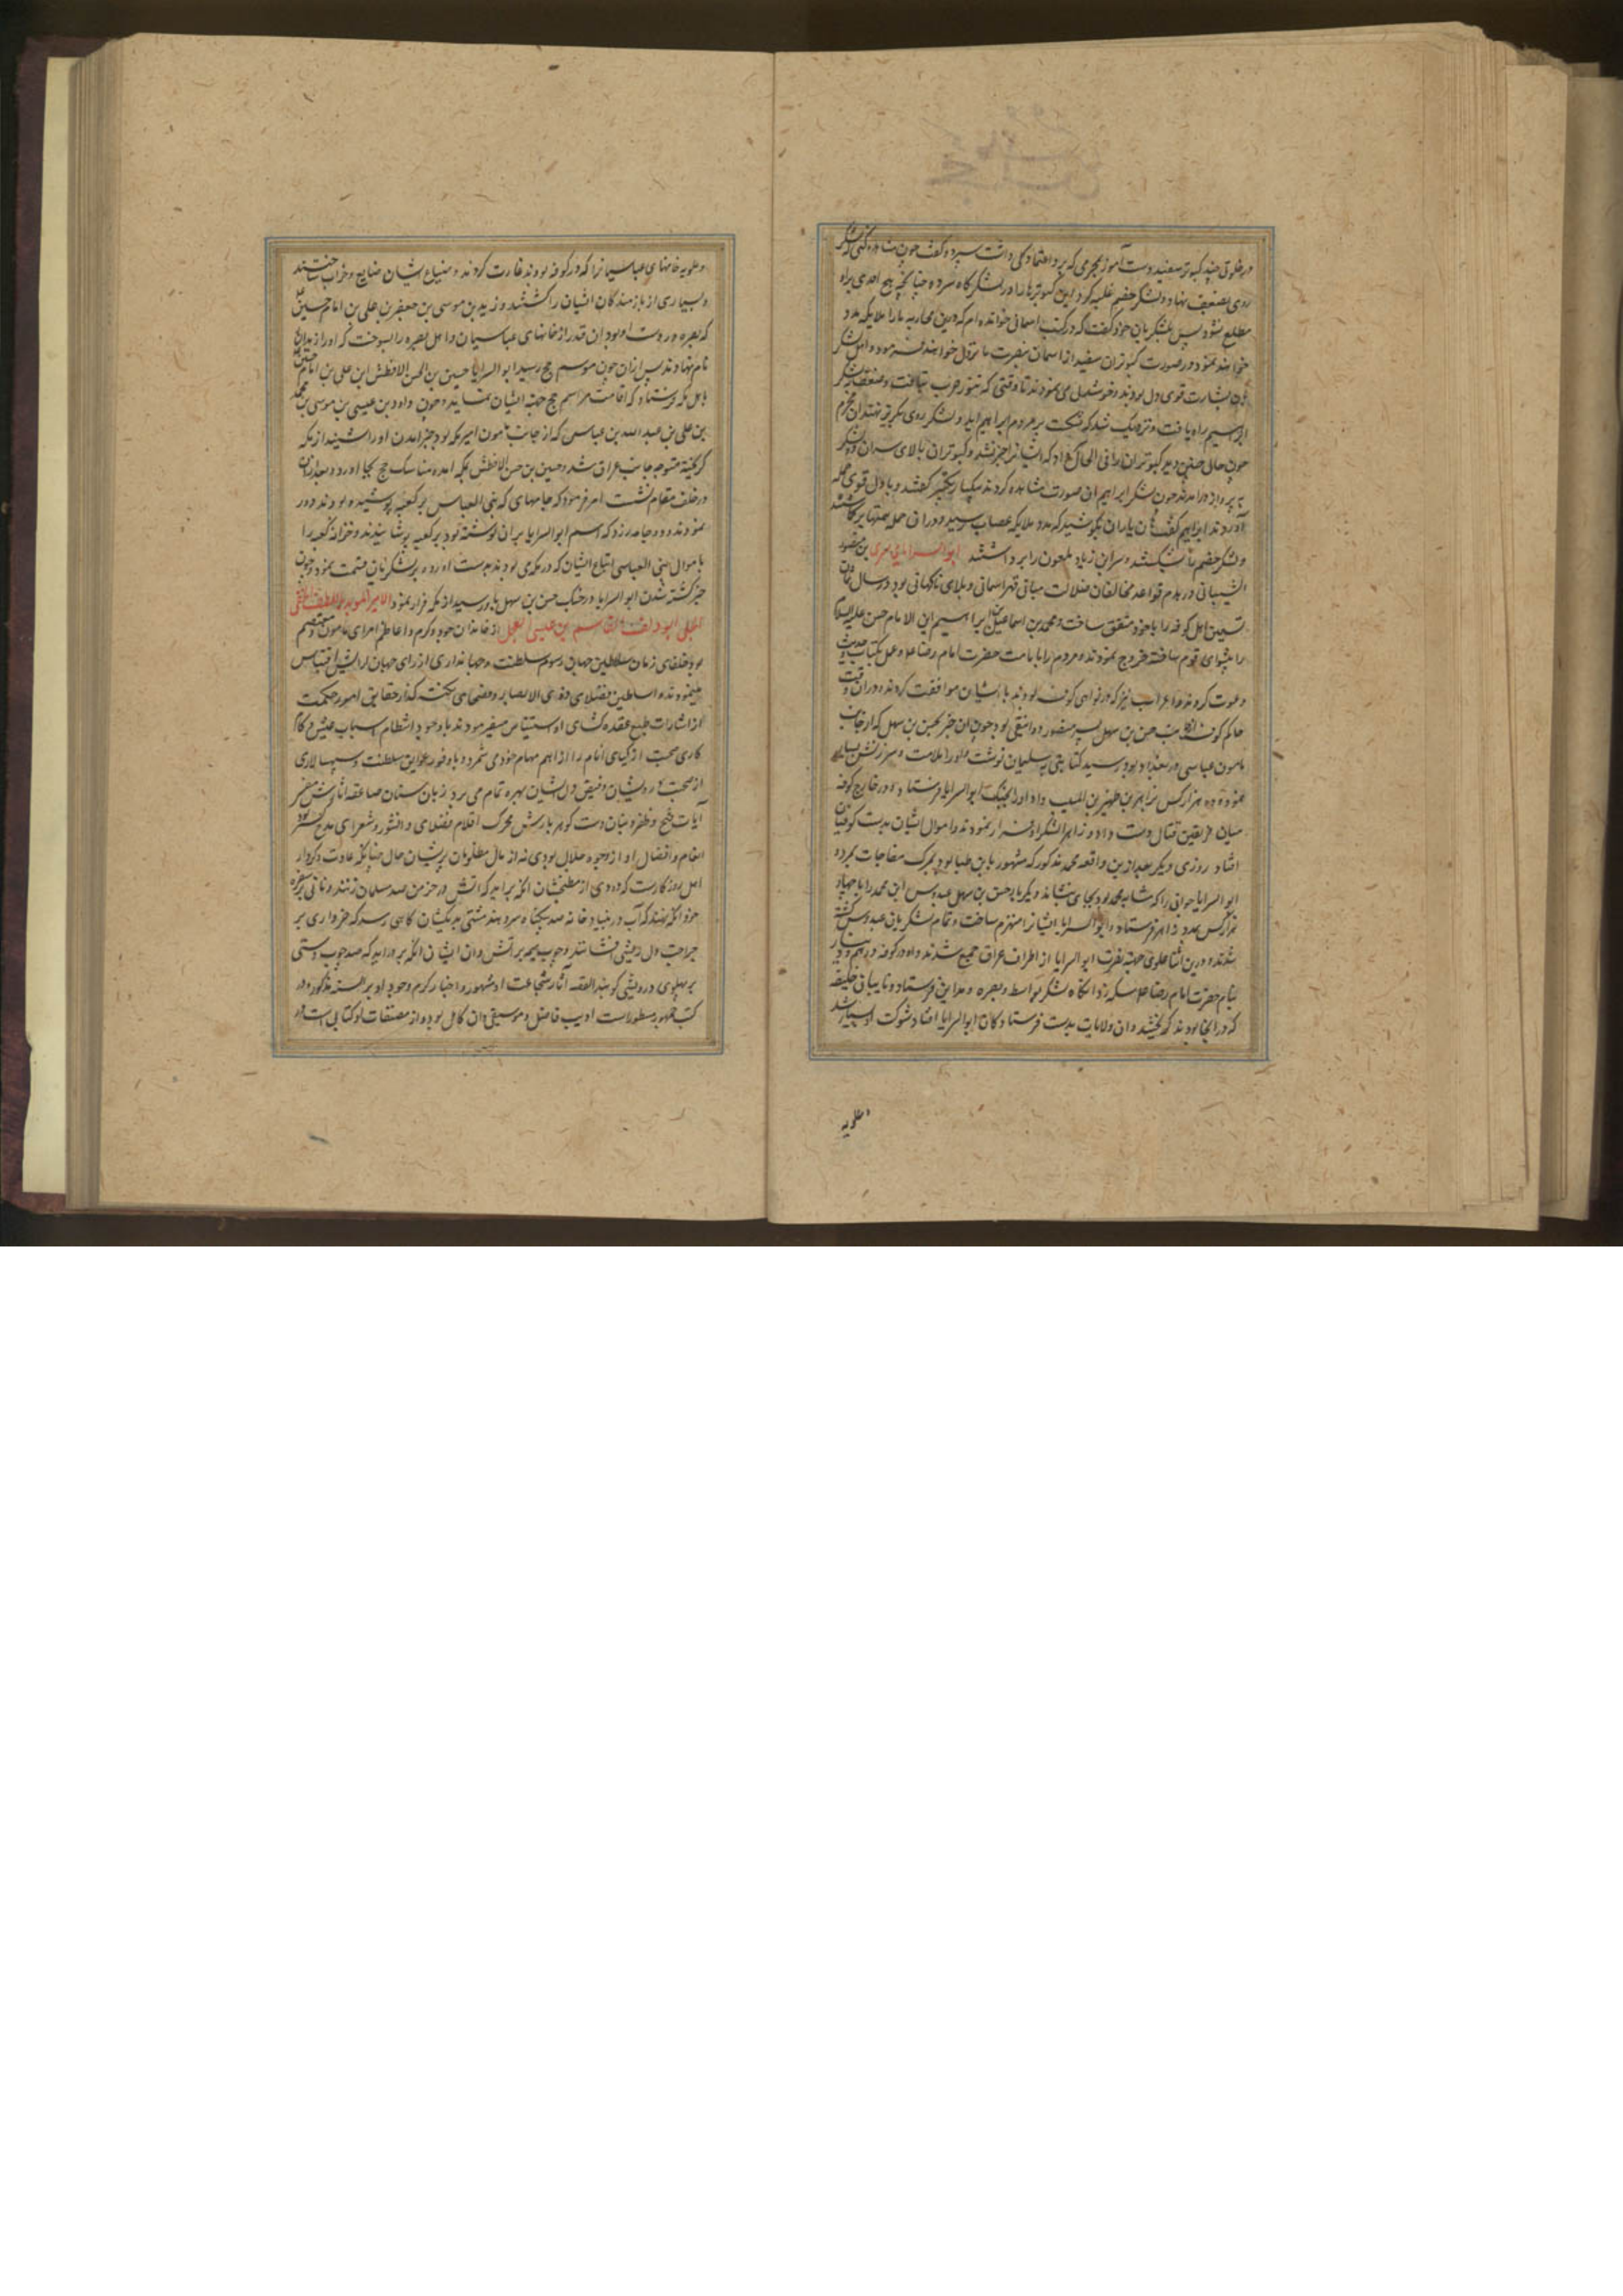 در خلوتی چند کبوتر سفید دست آموز بمحرمی که برو اعتماد کلی داشت سپرده گفت چون شما در لشکر
روی بضعف نهاد و لشکر خصم غلبه کرد این کبوترها را در لشکرگاه سر ده چنانچه هیچ احدی بر آن
مطلع نشود پس بلشکریان خود گفت که در کتب آسمانی خوانده ام که درین محاربه ما را ملایکه مدد
خواهند نمود در صورت کبوتران سفید از آسمان بنصرت ما نزول خواهند فرمود و اهل لشکر
بآن بشارت قوی دل بودند و خوشدلی می نمودند تا وقتی که تنور حرب بتافت و ضعف بلشکر
ابراهیم راه یافت و نزدیک شد که شکست بر مردم ابراهیم آید و لشکر روی بگریز نهند آن محرم
چون حال چنین دید کبوتران را فی الحال سر داد که ایشان را خبر نشد و کبوتران بالای سر آن لشکر
به پرواز درآمدند چون لشکر ابراهیم آن صورت مشاهده کردند بیکبار تکبیر گفتند و با دل قوی حمله
آوردند ابراهیم گفت هان یاران بکوشید که مدد ملایکه عصاب رسید و در آن حمله
و لشکر خصم را شکستند و سر ابن زیاد ملعون را برداشتند ابو السرایا سری بن منصور
الشیبانی در هدم قواعد مخالفان ضلالت مبانی قهر آسمانی و بلای ناگهانی بود در سال
تسعین اهل کوفه را با خود متفق ساخت و محمد بن اسماعیل بن ابراهیم ابن الامام حسن علیه السلام
را پیشوای قوم ساخته خروج نمودند و مردم را بامامت حضرت امام رضا ع و عمل بکتاب حدیث
دعوت کردند و اعراب نیز که در نواحی کوفه بودند با ایشان موافقت کردند و در آن وقت
حاکم کوفه از جانب حسن بن سهل پسر منصور دوانیقی بود چون این خبر بحسن بن سهل که از جانب
مامون عباسی در بغداد بود رسید کتابتی به سلیمان نوشت و او را ملامت و سرزنش بسیار
نمود و ده هزار کس بزاهر بن زهیر بن المسیب داد او را بجنگ ابو السرایا فرستاد و در خارج کوفه
میان فریقین قتال دست داد و زاهر لشکر او فرار نمودند و اموال ایشان بدست کوفیان
افتاد روزی دیگر بعد ازین واقعه محمد مذکور که مشهور بابن طبا بود بمرگ مفاجات بمرد و
ابو السرایا جوانی را که مشابه محمد بود بجای بنشاند دیگر باره حسن بن سهل عبدوس ابن محمد را با چهار
هزار کس بمدد زاهر فرستاد و ابو السرایا ایشان را منهزم ساخت و تمام لشکریان عبدوس کشته
شدند و درین اثنا علوی جهة نصرت ابو السرایا از اطراف عراق جمع شدند و او در کوفه درهم و دینار
بنام حضرت امام رضا ع سکه زد آنگاه لشکر بواسط و بصره و مداین فرستاد و نایبان خلیفه
که در آنجا بودند گریختند و آن ولایات بدست فرستادگان ابو السرایا افتاد و شوکت او بسیار شد
علویه
و علویه خانهای عباسیان را که در کوفه بودند غارت کردند و ضیاع ایشان ضایع و خراب ساختند
و بسیاری از بازمندگان ایشان را کشتند و زید بن موسی بن جعفر بن علی بن امام حسین ع
که بصره در دست او بود آن قدر از خانهای عباسیان و اهل بصره را بسوخت که او را زید النار
نام نهادند پس ازان چون موسم حج رسید ابو السرایا حسین بن الحسن الافطس ابن علی بن امام حسین
باهل مکه فرستاد که اقامت مراسم حج جهة ایشان نماید و چون داود بن عیسی بن موسی بن محمد
بن علی بن عبد الله بن عباس که از جانب مامون امیر مکه بود خبر آمدن او را شنید از مکه
گریخته متوجه جانب عراق شد و حسین بن حسن الافطس بمکه آمده مناسک حج بجا آورد و بعد ازان
در خلف مقام نشست امر فرمود که جامهای که بنی العباس بر کعبه پوشیده بودند دور
نمودند و دو جامه زرد که اسم ابو السرایا بر آن نوشته بود بر کعبه پوشانیدند و خزانه کعبه را
با موال بنی العباس اتباع ایشان که در مکه بودند بدست آورده بر لشکریان قسمت نمود و چون
خبر کشته شدن ابو السرایا در جنگ حسن بن سهل باو رسید از مکه فرار نمود الامیر الموید
العجلی ابو دلف القاسم بن عیسی العجل از خاندان جود و کرم و اعاظم امرای مامون و معتصم
بود خلفای زمان سلاطین جهان رسوم سلطنت و جهانداری از رای جهان آرایش اقتباس
مینمودند و اساطین فضلای ذوی الابصار و فصحای سخن گذار حقایق امور حکمت
از اشارات طبع عقده کشای او استیناس میفرمودند با وجود انتظام اسباب عیش و کام
کاری صحبت ازکیای انام را از اهم مهام خود می شمرد و با وفور عوایق سلطنت و سپهسالاری
از صحبت درویشان و فیض دل ایشان بهره تمام می برد زبان سنان صاعقه آثارش مفسر
آیات فتح و ظفر و بنان دست گوهربارش محرک اقلام فضلای دانشور و شعرای مدح گستر بود
انعام و افضال او از وجوه حلال بودی نه از مال مظلومان پریشان حال چنانکه عادت و کردار
اهل روزگارست که دودی از مطبخشان آنگه برآید که آتش در خرمن صد مسلمان زنند و نانی بر سفره
خود آنگه نهند که آب در بنیاد خانه صد بیگناه سر دهند مشتی بدیشان گاهی رسد که خرواری بر
جراحت دل ریشی فشانند و چوب بیم بر آتش دان ایشان آنگه برآید که صد چوب دستی
بر پهلوی درویشی کوبند القصه آثار شجاعت او مشهور و اخبار کرم وجود او بر السنه مذکور و در
کتب جمهور مسطورست ادیب فاضل و موسیقی دان کامل بوده و از مصنفات او کتابی است در